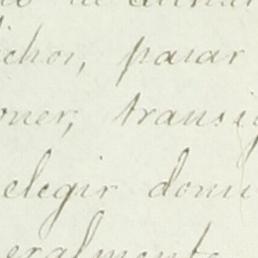 ichos, parar
oner, transi
elegir domi
eralmente